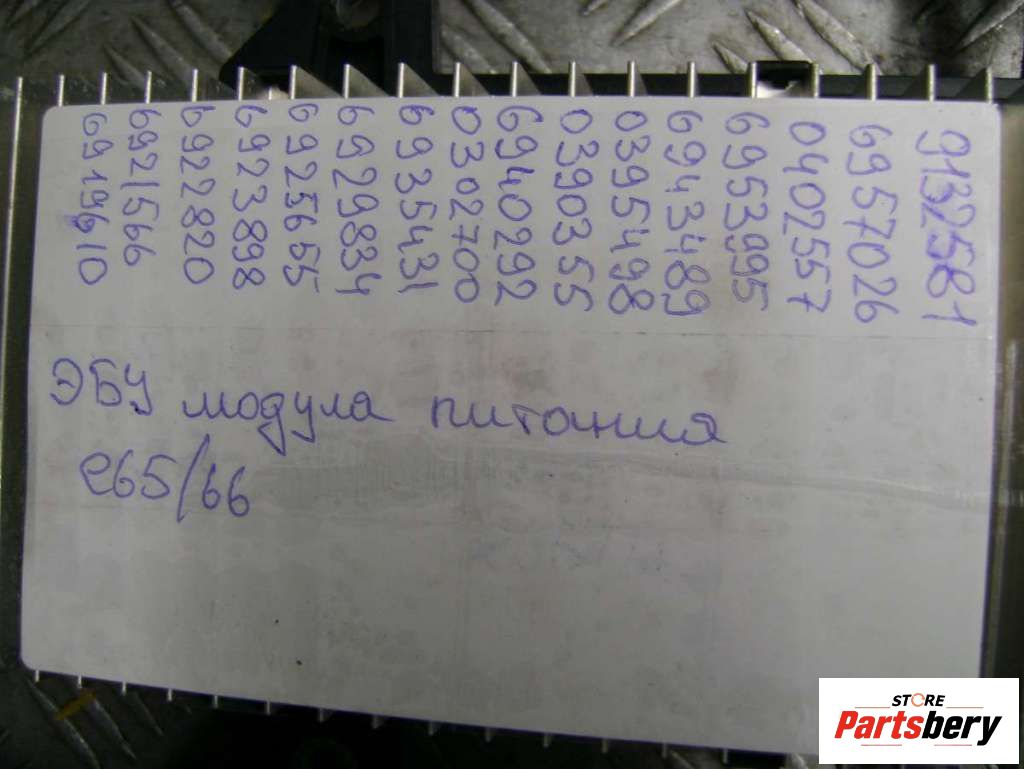 9132581
6957026
0402557
6953995
6943489
0395498
0390355
6940292
0302700
6935431
6929834
6925655
6923898
6922820
6921566
6919610
ЭБУ модула питания
е65/66
STORE
Partsbery